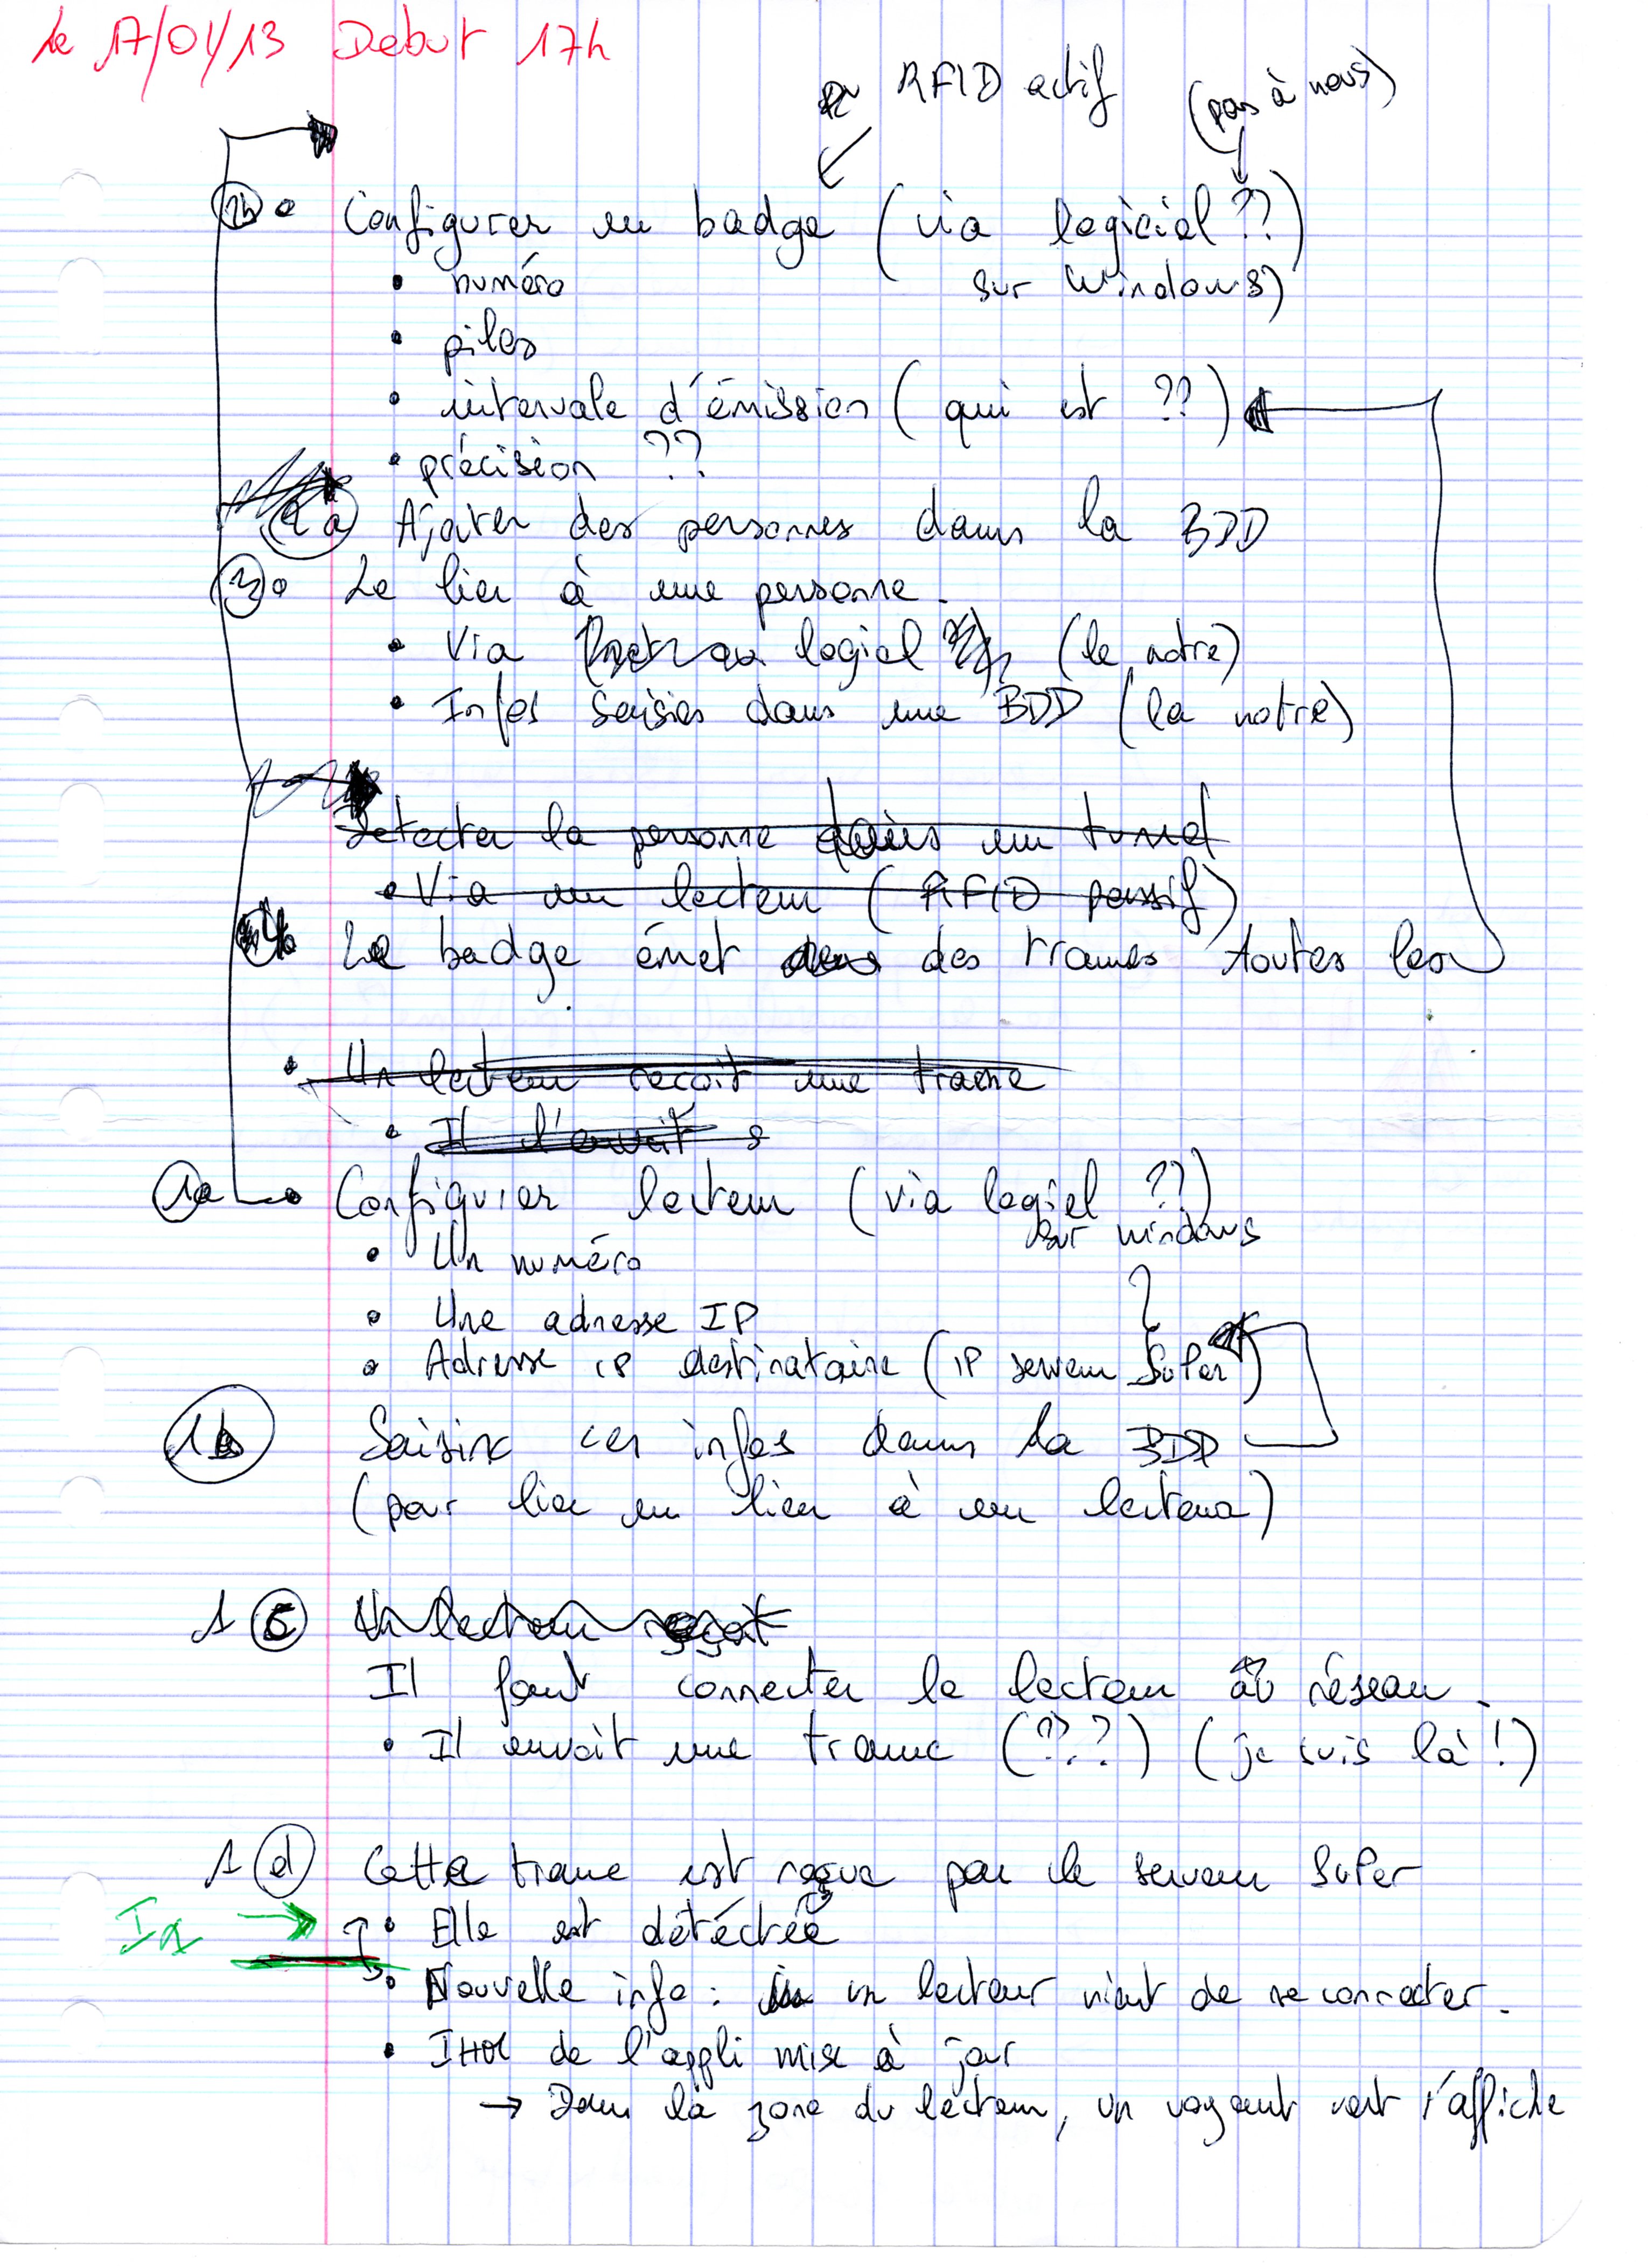 le 17/01/13 Debut 17h
RFID actif (pas à nous)
2b Configurer un badge (via logiciel ??)
• numéro sur Windows)
• piles
• intervale d'émission (qui est ??)
• précision ??
2a Ajouter des personnes dans la BDD
3 Le lier à une personne.
• Via logiel (le notre)
• Infos saisies dans une BDD (la notre)
Détecter la personne dans un tunnel
• Via un lecteur (RFID passif)
4 Le badge émet des trames toutes les
• Un lecteur recoit une trame
• Il l'envoit s
1a Configurer lecteur (via logiel ??)
sur windows
• Un numéro
• Une adresse IP
?
• Adresse IP destinataire (IP serveur SuPer)
1b Saisir ces infos dans la BDD
(pour lier un lieu à un lecteur)
1 c Un lecteur reçoit
Il faut connecter le lecteur au réseau.
• Il envoit une trame (???) (je suis là !)
1 d Cette trame est reçue par le serveur SuPer
• Elle est détéctée
• Nouvelle info : un lecteur vient de se connecter.
• IHM de l'appli mise à jour
→ Dans la zone du lecteur, un voyant vert s'affiche